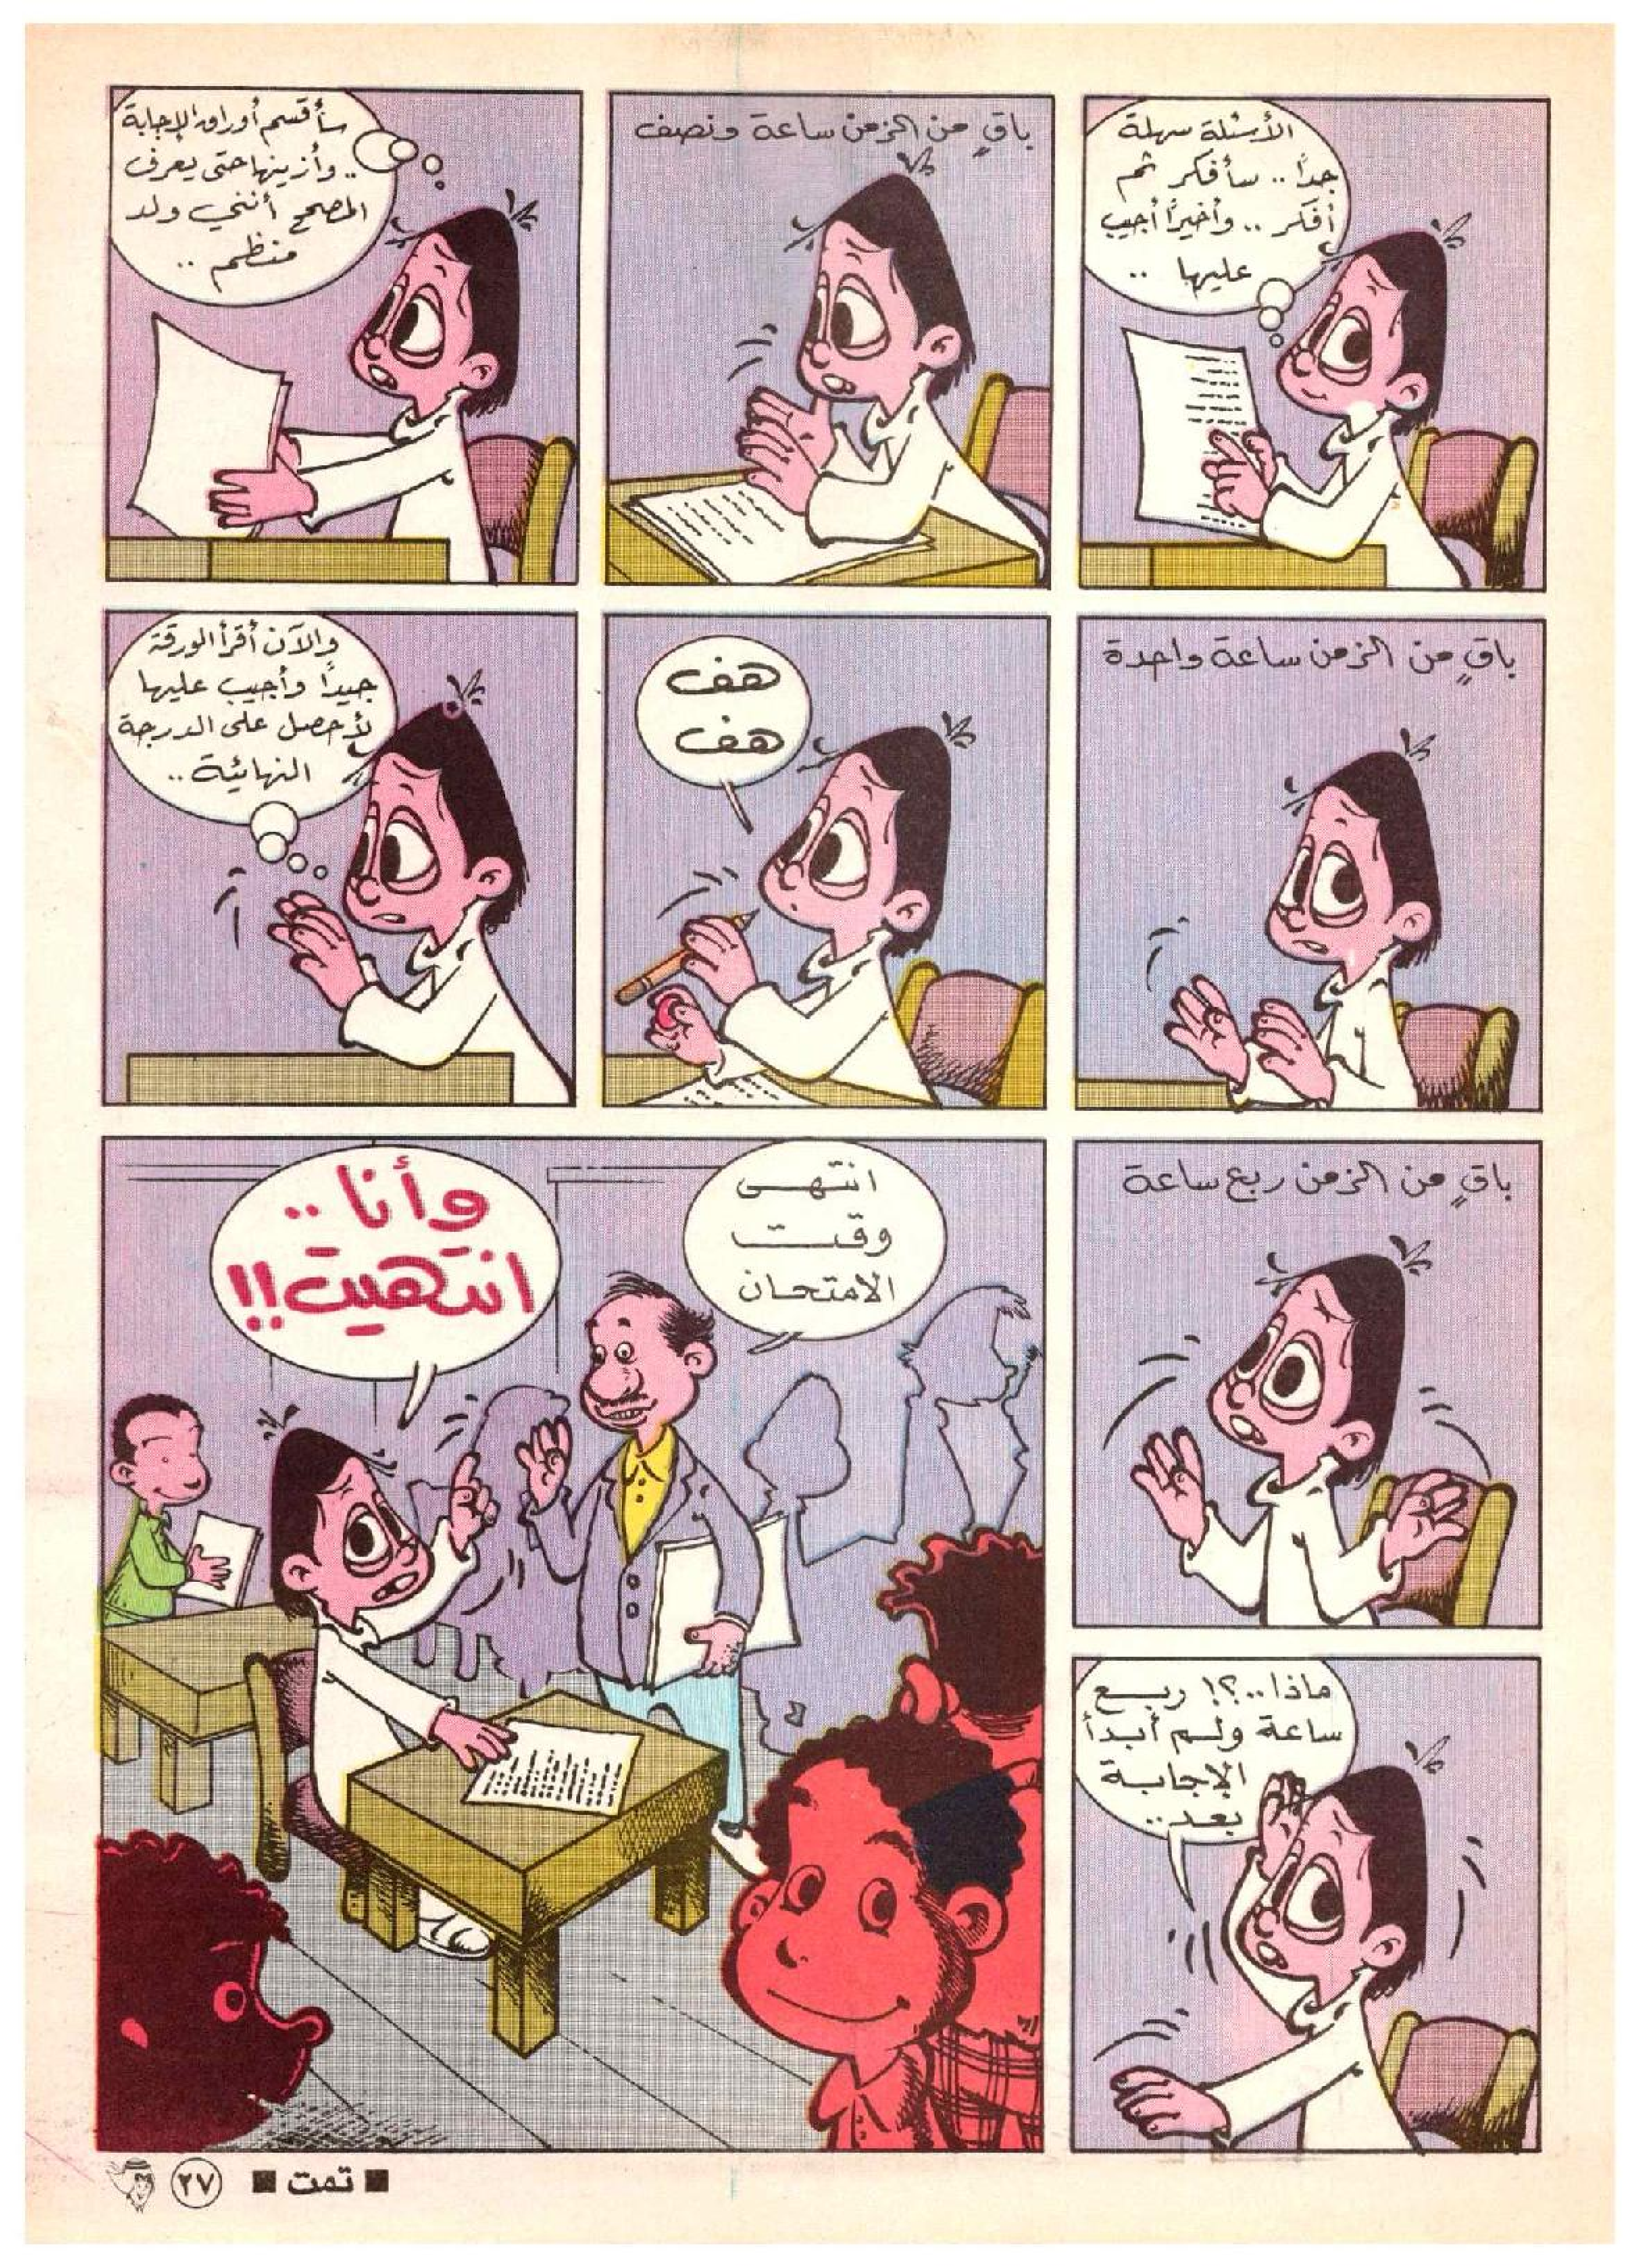 الأسئلة سهلة
جداً .. سأفكر ثم
أفكر .. وأخيراً أجيب
عليها ..
باقٍ من الزمن ساعة ونصف
سأقسم أوراق الإجابة
.. وأزينها حتى يعرف
المصحح أنني ولد
منظم ..
باقٍ من الزمن ساعة واحدة
هف
هف
والآن أقرأ الورقة
جيداً وأجيب عليها
لأحصل على الدرجة
النهائية ..
باقٍ من الزمن ربع ساعة
ماذا..؟! ربع
ساعة ولم أبدأ
الإجابة
بعد..
انتهى
وقت
الامتحان
وأنا ..
انتهيت!!
■ تمت ■
٢٧